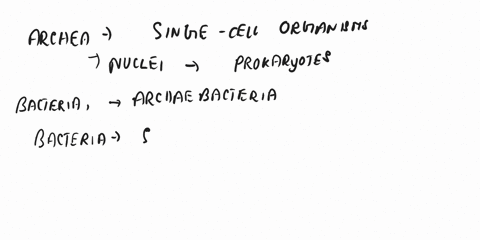 ARCHEA → SINGLE-CELL ORGANISMS
→ NUCLEI → PROKARYOTES
BACTERIA, → ARCHAEBACTERIA
BACTERIA → S